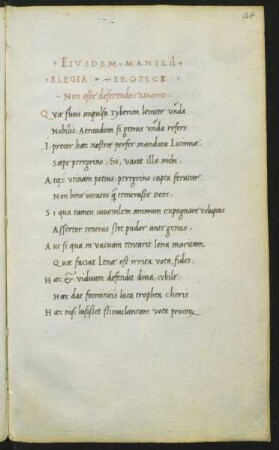 124
EIVSDEM MANILII
ELEGIA EROTICE
Non esse deserendos amores
Quae fluis impulsu Tyberim leniter unda
Nobilis Aeneadum si genus unda refers
I precor haec nostrae perfer mandata Licinnae
Saepe peregrino, dic, vacat illa mihi.
Atque utinam potius peregrino capta feratur
Non bene iuratos quam temerasse deos.
Si qua tamen iuvenilem animum expugnare voluptas
Assertor teneras stet pudor ante genas.
Aut si quam vacuam tentarit lena maritam
Quae faciat Lenae est irrita vota, fides.
Haec et viduum defendit diva cubile
Haec dat foemineis luca trophea choris
Haec nisi lusisset stimulantum vota procorum